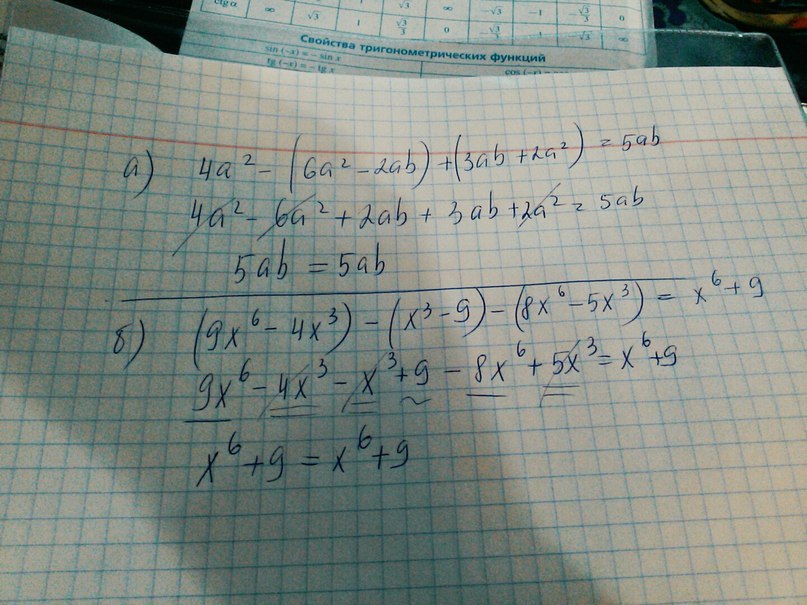 ctg α ∞ √3 1 √3/3 0 −√3/3 −1 −√3 ∞
Свойства тригонометрических функций
sin (−x) = − sin x
tg (−x) = − tg x
а) 4a² − (6a² − 2ab) + (3ab + 2a²) = 5ab
4a² − 6a² + 2ab + 3ab + 2a² = 5ab
5ab = 5ab
б) (9x⁶ − 4x³) − (x³ − 9) − (8x⁶ − 5x³) = x⁶ + 9
9x⁶ − 4x³ − x³ + 9 − 8x⁶ + 5x³ = x⁶ + 9
x⁶ + 9 = x⁶ + 9